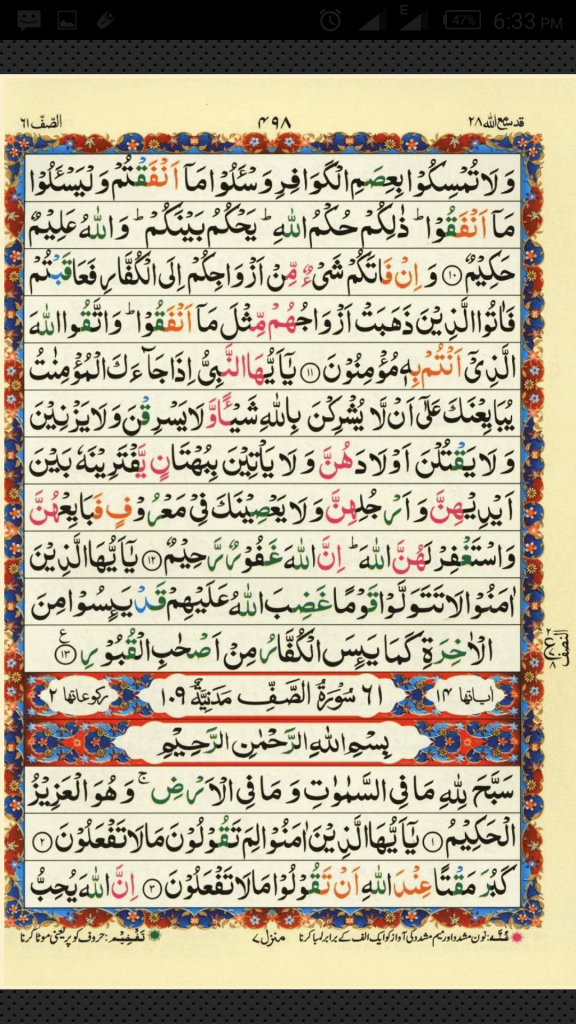 E 47% 6:33 PM
قد سمع الله ٢٨ ۴۹۸ الصّفّ ٦١
وَلَا تُمْسِكُوْا بِعِصَمِ الْكَوَافِرِ وَسْـَٔلُوْا مَاۤ اَنْفَقْتُمْ وَلْيَسْـَٔلُوْا
مَاۤ اَنْفَقُوْا ؕ ذٰلِكُمْ حُكْمُ اللّٰهِ ؕ يَحْكُمُ بَيْنَكُمْ ؕ وَاللّٰهُ عَلِيْمٌ
حَكِيْمٌ ﴿۱۰﴾ وَ اِنْ فَاتَكُمْ شَىْءٌ مِّنْ اَزْوَاجِكُمْ اِلَى الْكُفَّارِ فَعَاقَبْتُمْ
فَاٰتُوا الَّذِيْنَ ذَهَبَتْ اَزْوَاجُهُمْ مِّثْلَ مَاۤ اَنْفَقُوْا ؕ وَاتَّقُوا اللّٰهَ
الَّذِىْۤ اَنْتُمْ بِهٖ مُؤْمِنُوْنَ ﴿۱۱﴾ يٰۤاَيُّهَا النَّبِىُّ اِذَا جَآءَكَ الْمُؤْمِنٰتُ
يُبَايِعْنَكَ عَلٰٓى اَنْ لَّا يُشْرِكْنَ بِاللّٰهِ شَيْـًٔا وَّلَا يَسْرِقْنَ وَلَا يَزْنِيْنَ
وَلَا يَقْتُلْنَ اَوْلَادَهُنَّ وَلَا يَاْتِيْنَ بِبُهْتَانٍ يَّفْتَرِيْنَهٗ بَيْنَ
اَيْدِيْهِنَّ وَاَرْجُلِهِنَّ وَلَا يَعْصِيْنَكَ فِىْ مَعْرُوْفٍ فَبَايِعْهُنَّ
وَاسْتَغْفِرْ لَهُنَّ اللّٰهَ ؕ اِنَّ اللّٰهَ غَفُوْرٌ رَّحِيْمٌ ﴿۱۲﴾ يٰۤاَيُّهَا الَّذِيْنَ
اٰمَنُوْا لَا تَتَوَلَّوْا قَوْمًا غَضِبَ اللّٰهُ عَلَيْهِمْ قَدْ يَـِٕسُوْا مِنَ
الْاٰخِرَةِ كَمَا يَـِٕسَ الْكُفَّارُ مِنْ اَصْحٰبِ الْقُبُوْرِ ﴿۱۳﴾
اٰیاتها ١۴ ٦١ سُوْرَةُ الصَّفِّ مَدَنِيَّةٌ ١٠٩ رکوعاتها ٢
بِسْمِ اللّٰهِ الرَّحْمٰنِ الرَّحِيْمِ
سَبَّحَ لِلّٰهِ مَا فِى السَّمٰوٰتِ وَمَا فِى الْاَرْضِ ۚ وَهُوَ الْعَزِيْزُ
الْحَكِيْمُ ﴿۱﴾ يٰۤاَيُّهَا الَّذِيْنَ اٰمَنُوْا لِمَ تَقُوْلُوْنَ مَا لَا تَفْعَلُوْنَ ﴿۲﴾
كَبُرَ مَقْتًا عِنْدَ اللّٰهِ اَنْ تَقُوْلُوْا مَا لَا تَفْعَلُوْنَ ﴿۳﴾ اِنَّ اللّٰهَ يُحِبُّ
غُنَّہ: نون مشدد اور میم مشدد کی آواز کو ایک الف کے برابر لمبا کرنا منزل ٧ تَفْخِیْم: حروف کو پُر یعنی موٹا کرنا